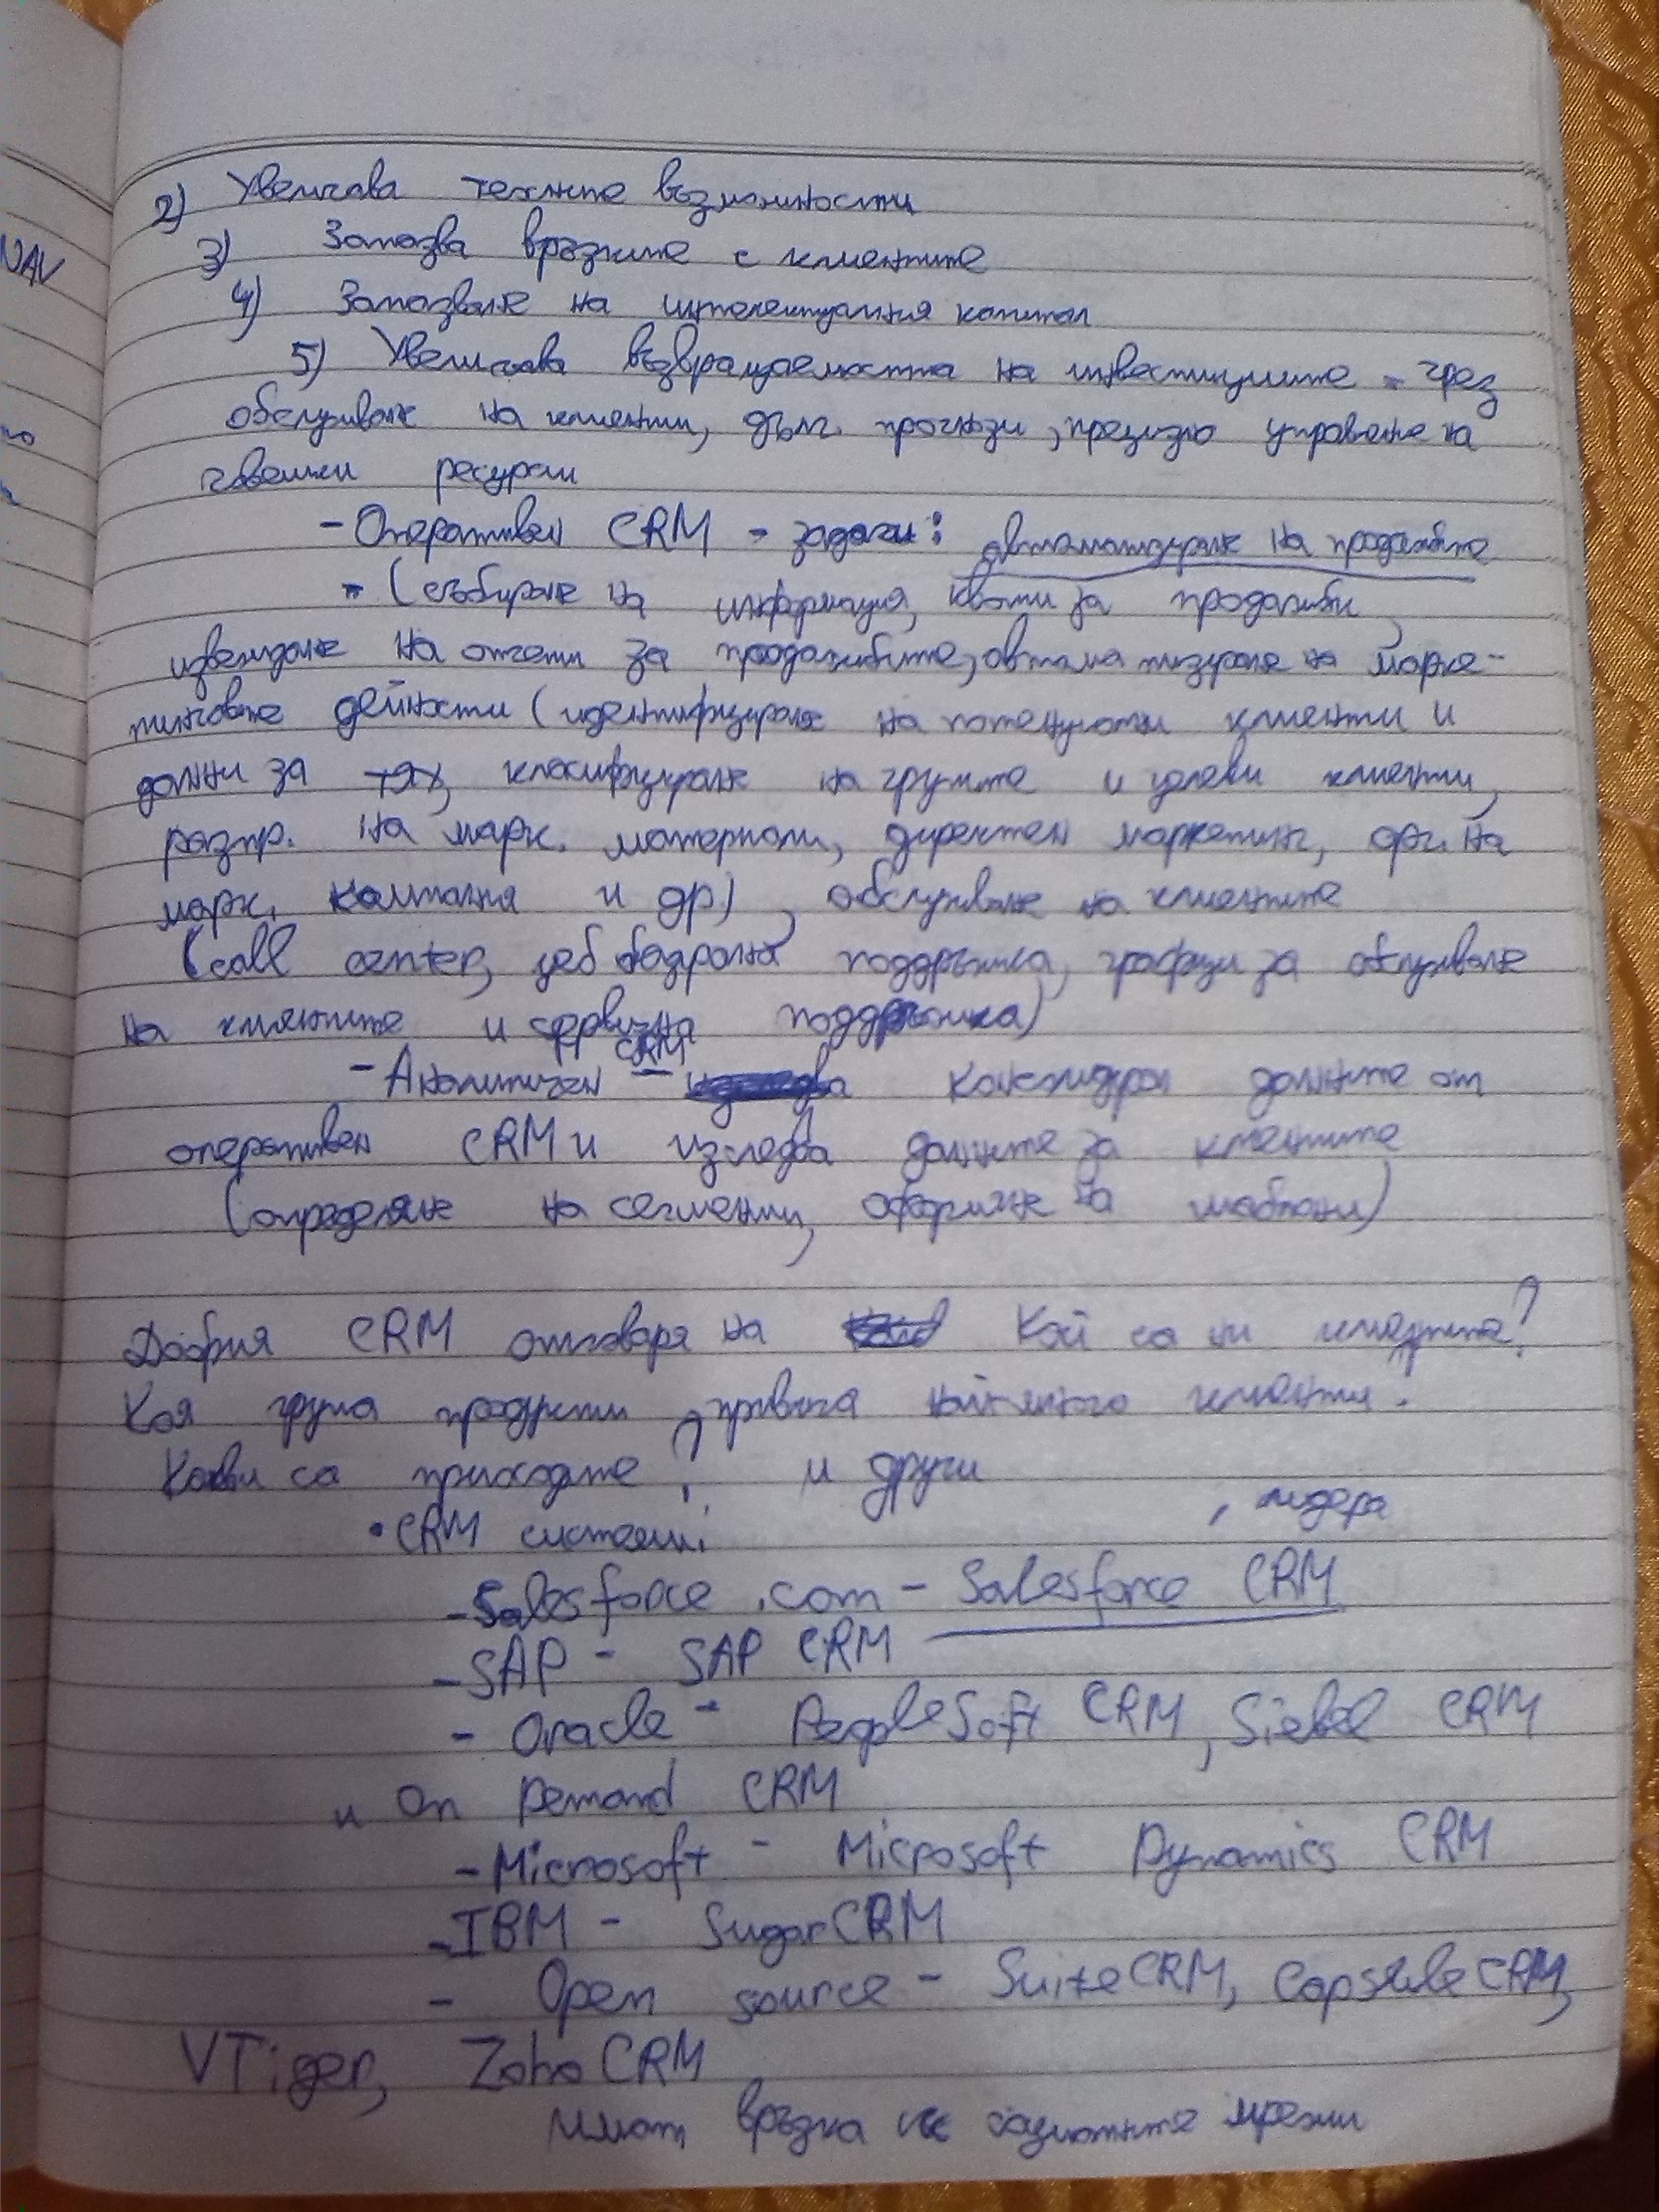 NAV
2) Увеличава техните възможности
3) Запазва връзките с клиентите
4) Запазване на интелектуалния капитал
5) Увеличава възвращаемостта на инвестициите - чрез
обслужване на клиенти, дълг. прогнози, прецизно управление на
човешки ресурси
- Оперативен CRM - задачи: автоматизиране на продажбите
- (събиране на информация, квоти за продажби,
извеждане на отчети за продажбите, автоматизиране на марке-
тинговите дейности (идентифициране на потенциални клиенти и
данни за тях, класифициране на групите и целеви клиенти,
разпр. на марк. материали, директен маркетинг, орг. на
марк. кампания и др), обслужване на клиентите
(call center, уеб базирана поддръжка, графици за обслужване
на клиентите и сервизна поддръжка)
- Аналитичен CRM - консолидира данните от
оперативен CRM и изследва данните за клиентите
(определяне на сегменти, оформяне на шаблони)
Добрия CRM отговаря на Кой са ни клиентите?
Коя група продукти привлича най-много клиенти?
Какви са приходите? и други
• CRM системи: , лидера
- Salesforce.com - Salesforce CRM
- SAP - SAP CRM
- Oracle - PeopleSoft CRM, Siebel CRM
и On Demand CRM
- Microsoft - Microsoft Dynamics CRM
- IBM - SugarCRM
- Open source - SuiteCRM, CapsuleCRM,
VTiger, Zoho CRM
Имат връзка със социалните мрежи